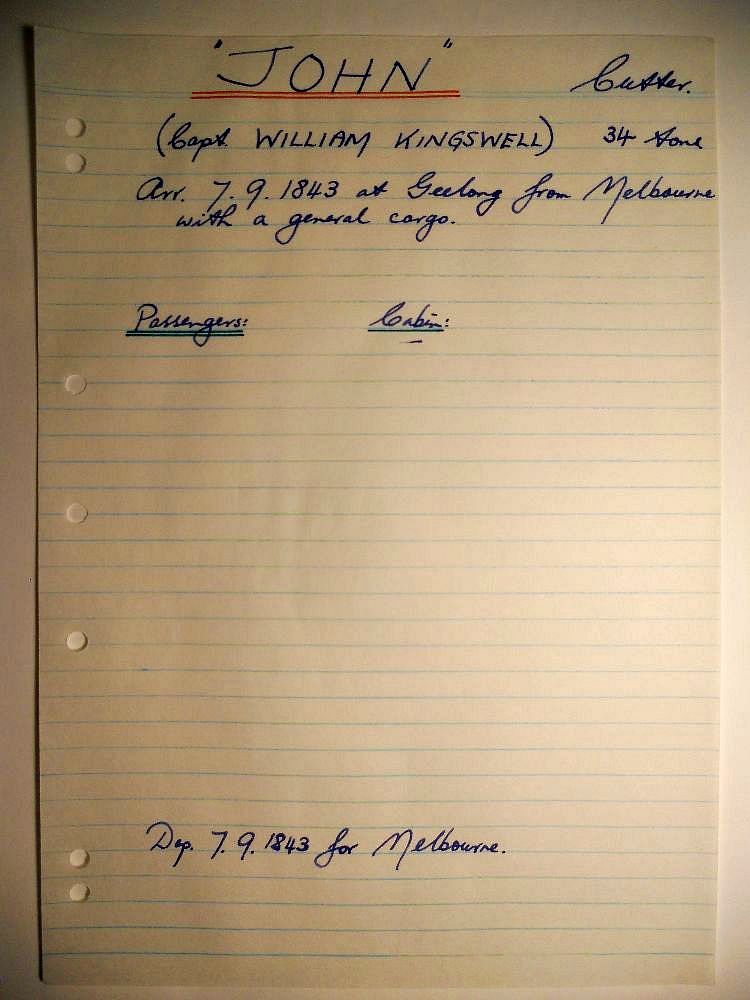 "JOHN" Cutter.
(Capt. WILLIAM KINGSWELL) 34 tons
Arr. 7.9.1843 at Geelong from Melbourne
with a general cargo.
Passengers: Cabin:
Dep. 7.9.1843 for Melbourne.